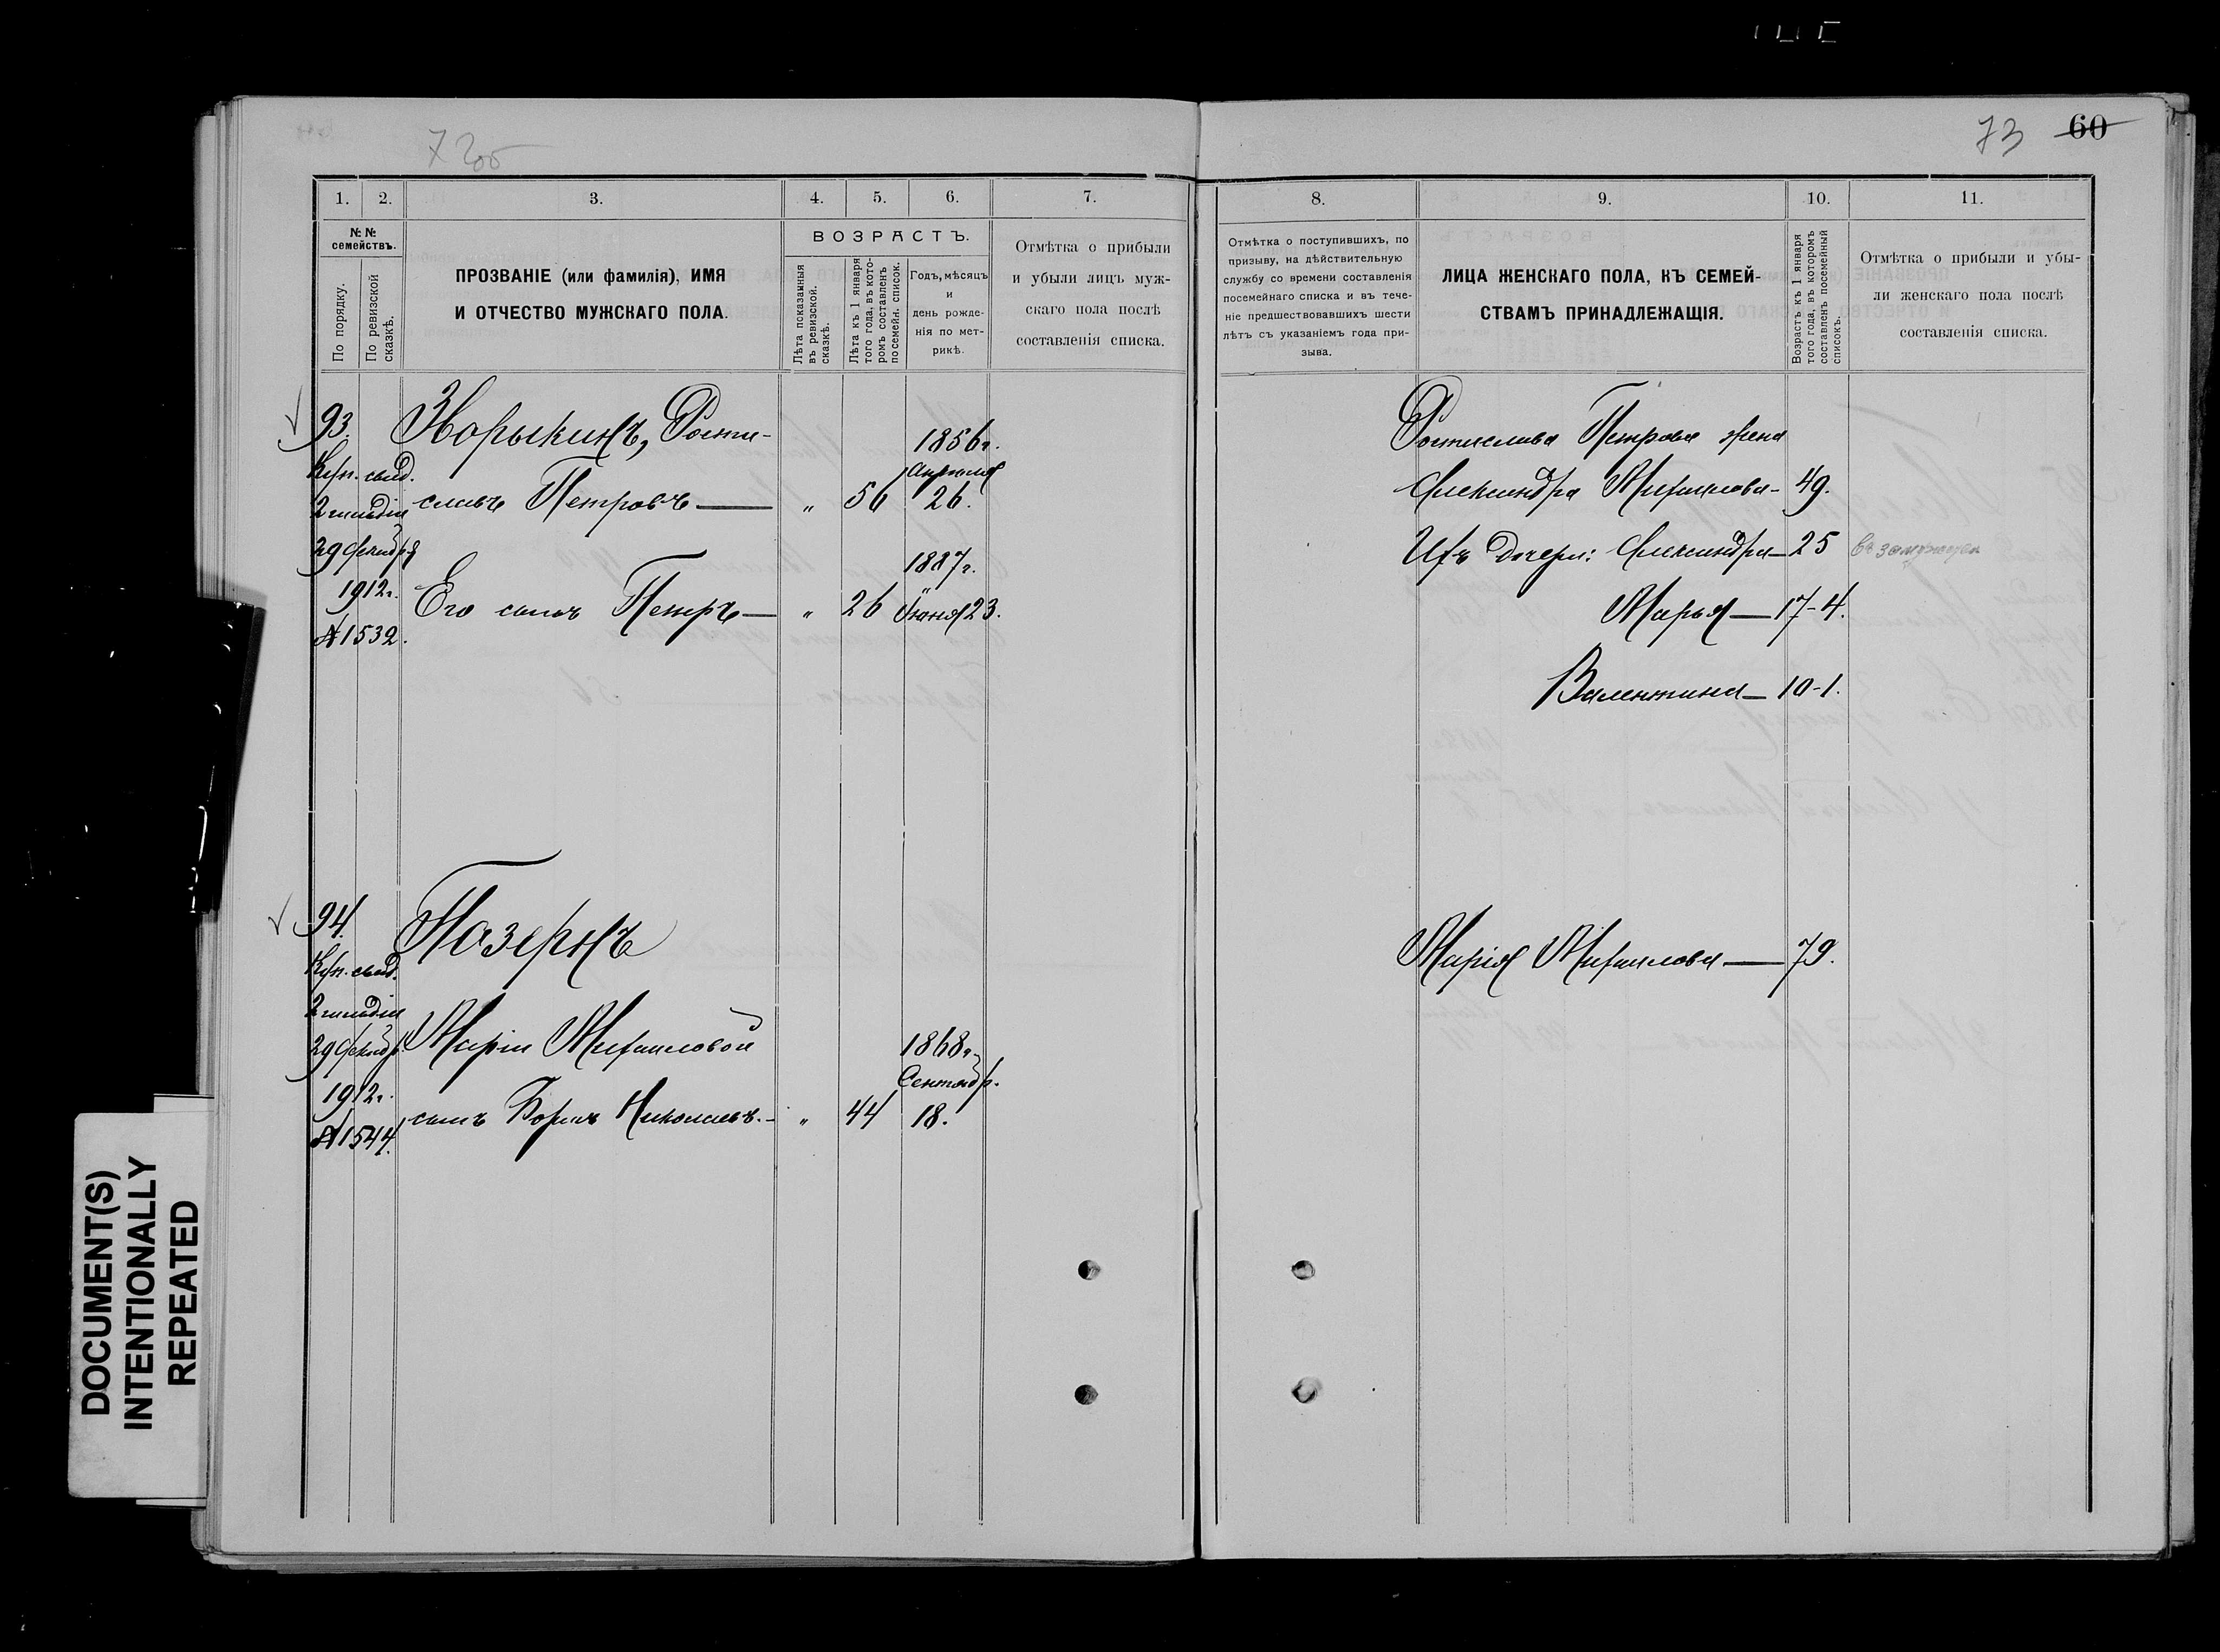 72об
73 60
1. 2. 3. 4. 5. 6. 7.
№№ семействъ.
По порядку.
По ревизской сказкѣ.
ПРОЗВАНІЕ (или фамилія), ИМЯ
И ОТЧЕСТВО МУЖСКАГО ПОЛА.
ВОЗРАСТЪ.
Лѣта показанныя
въ ревизской.
сказкѣ.
Лѣта къ 1 января
того года, въ кото-
ромъ составленъ
посемейн. список.
Годъ, мѣсяцъ
и
день рожде-
нія по мет-
рикѣ.
Отмѣтка о прибыли
и убыли лицъ муж-
скаго пола послѣ
составленія списка.
93. Зворыкинъ, Рости-
1856г.
Куп. свид.
Апрѣля
2 гильдіи
славъ Петровъ — " 56 26.
29 Декабря
1887г.
1912г. Его сынъ Петръ — " 26 Іюня 23.
№1532.
94. Позернъ
Куп. свид.
2 гильдіи
29 Декабр. Маріи Михайловой 1868г.
Сентябр.
1912г.
№1544. сынъ Борисъ Николаевъ. - " 44 18.
8. 9. 10. 11.
Отмѣтка о поступившихъ, по
призыву, на дѣйствительную
службу со времени составленія
посемейнаго списка и въ тече-
ніе предшествовавшихъ шести
лѣтъ съ указаніемъ года при-
зыва.
ЛИЦА ЖЕНСКАГО ПОЛА, КЪ СЕМЕЙ-
СТВАМЪ ПРИНАДЛЕЖАЩІЯ.
Возрастъ къ 1 января
того года, въ которомъ
составленъ посемейный
списокъ.
Отмѣтка о прибыли и убы-
ли женскаго пола послѣ
составленія списка.
Ростислава Петрова жена
Александра Михайлова - 49.
Ихъ дочери: Александра — 25 въ замужест
Марья — 17-4.
Валентина — 10-1.
Марія Михайлова — 79.
DOCUMENT(S)
INTENTIONALLY
REPEATED